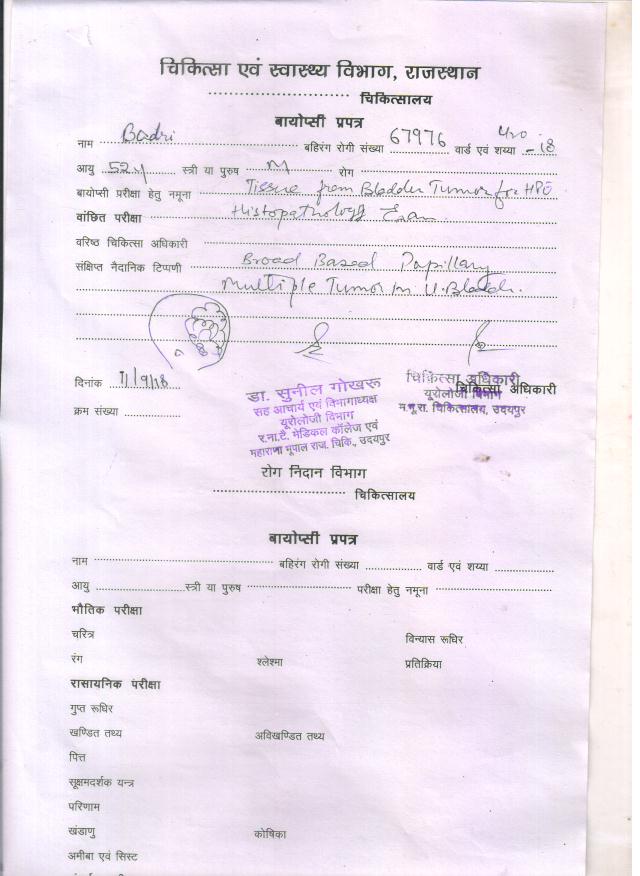 चिकित्सा एवं स्वास्थ्य विभाग, राजस्थान
चिकित्सालय
बायोप्सी प्रपत्र
नाम Badri बहिरंग रोगी संख्या 67976 वार्ड एवं शय्या -18
आयु 52y स्त्री या पुरुष M रोग
बायोप्सी परीक्षा हेतु नमूना Tissue from Bladder Tumor for HPE
वांछित परीक्षा Histopathology Exam
वरिष्ठ चिकित्सा अधिकारी
संक्षिप्त नैदानिक टिप्पणी Broad Based Papillary
Multiple Tumor in U. Bladder.
दिनांक 11/9/18
क्रम संख्या
डा. सुनील गोखरू
सह आचार्य एवं विभागाध्यक्ष
यूरोलोजी विभाग
र.ना.टै. मेडिकल कॉलेज एवं
महाराणा भूपाल राज. चिकि., उदयपुर
चिकित्सा अधिकारी
चिकित्सा अधिकारी
यूरोलोजी विभाग
म.भू.रा. चिकित्सालय, उदयपुर
रोग निदान विभाग
चिकित्सालय
बायोप्सी प्रपत्र
नाम बहिरंग रोगी संख्या वार्ड एवं शय्या
आयु स्त्री या पुरुष परीक्षा हेतु नमूना
भौतिक परीक्षा
चरित्र विन्यास रूधिर
रंग श्लेश्मा प्रतिक्रिया
रासायनिक परीक्षा
गुप्त रूधिर
खण्डित तथ्य अविखण्डित तथ्य
पित्त
सूक्षमदर्शक यन्त्र
परिणाम
खंडाणु कोषिका
अमीबा एवं सिस्ट